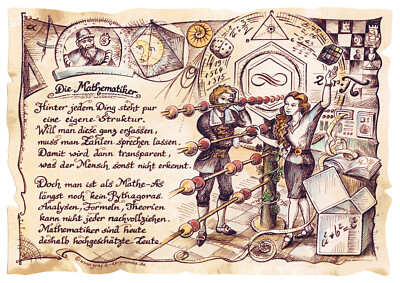 Die Mathematiker
Hinter jedem Ding steht pur
eine eigene Struktur.
Will man diese ganz erfassen,
muss man Zahlen sprechen lassen.
Damit wird dann transparent,
was der Mensch sonst nicht erkennt.
Doch man ist als Mathe-As
längst noch kein Pythagoras.
Analysen, Formeln, Theorien
kann nicht jeder nachvollziehen.
Mathematiker sind heute
deshalb hochgeschätzte Leute.
π
a² + b² = c²